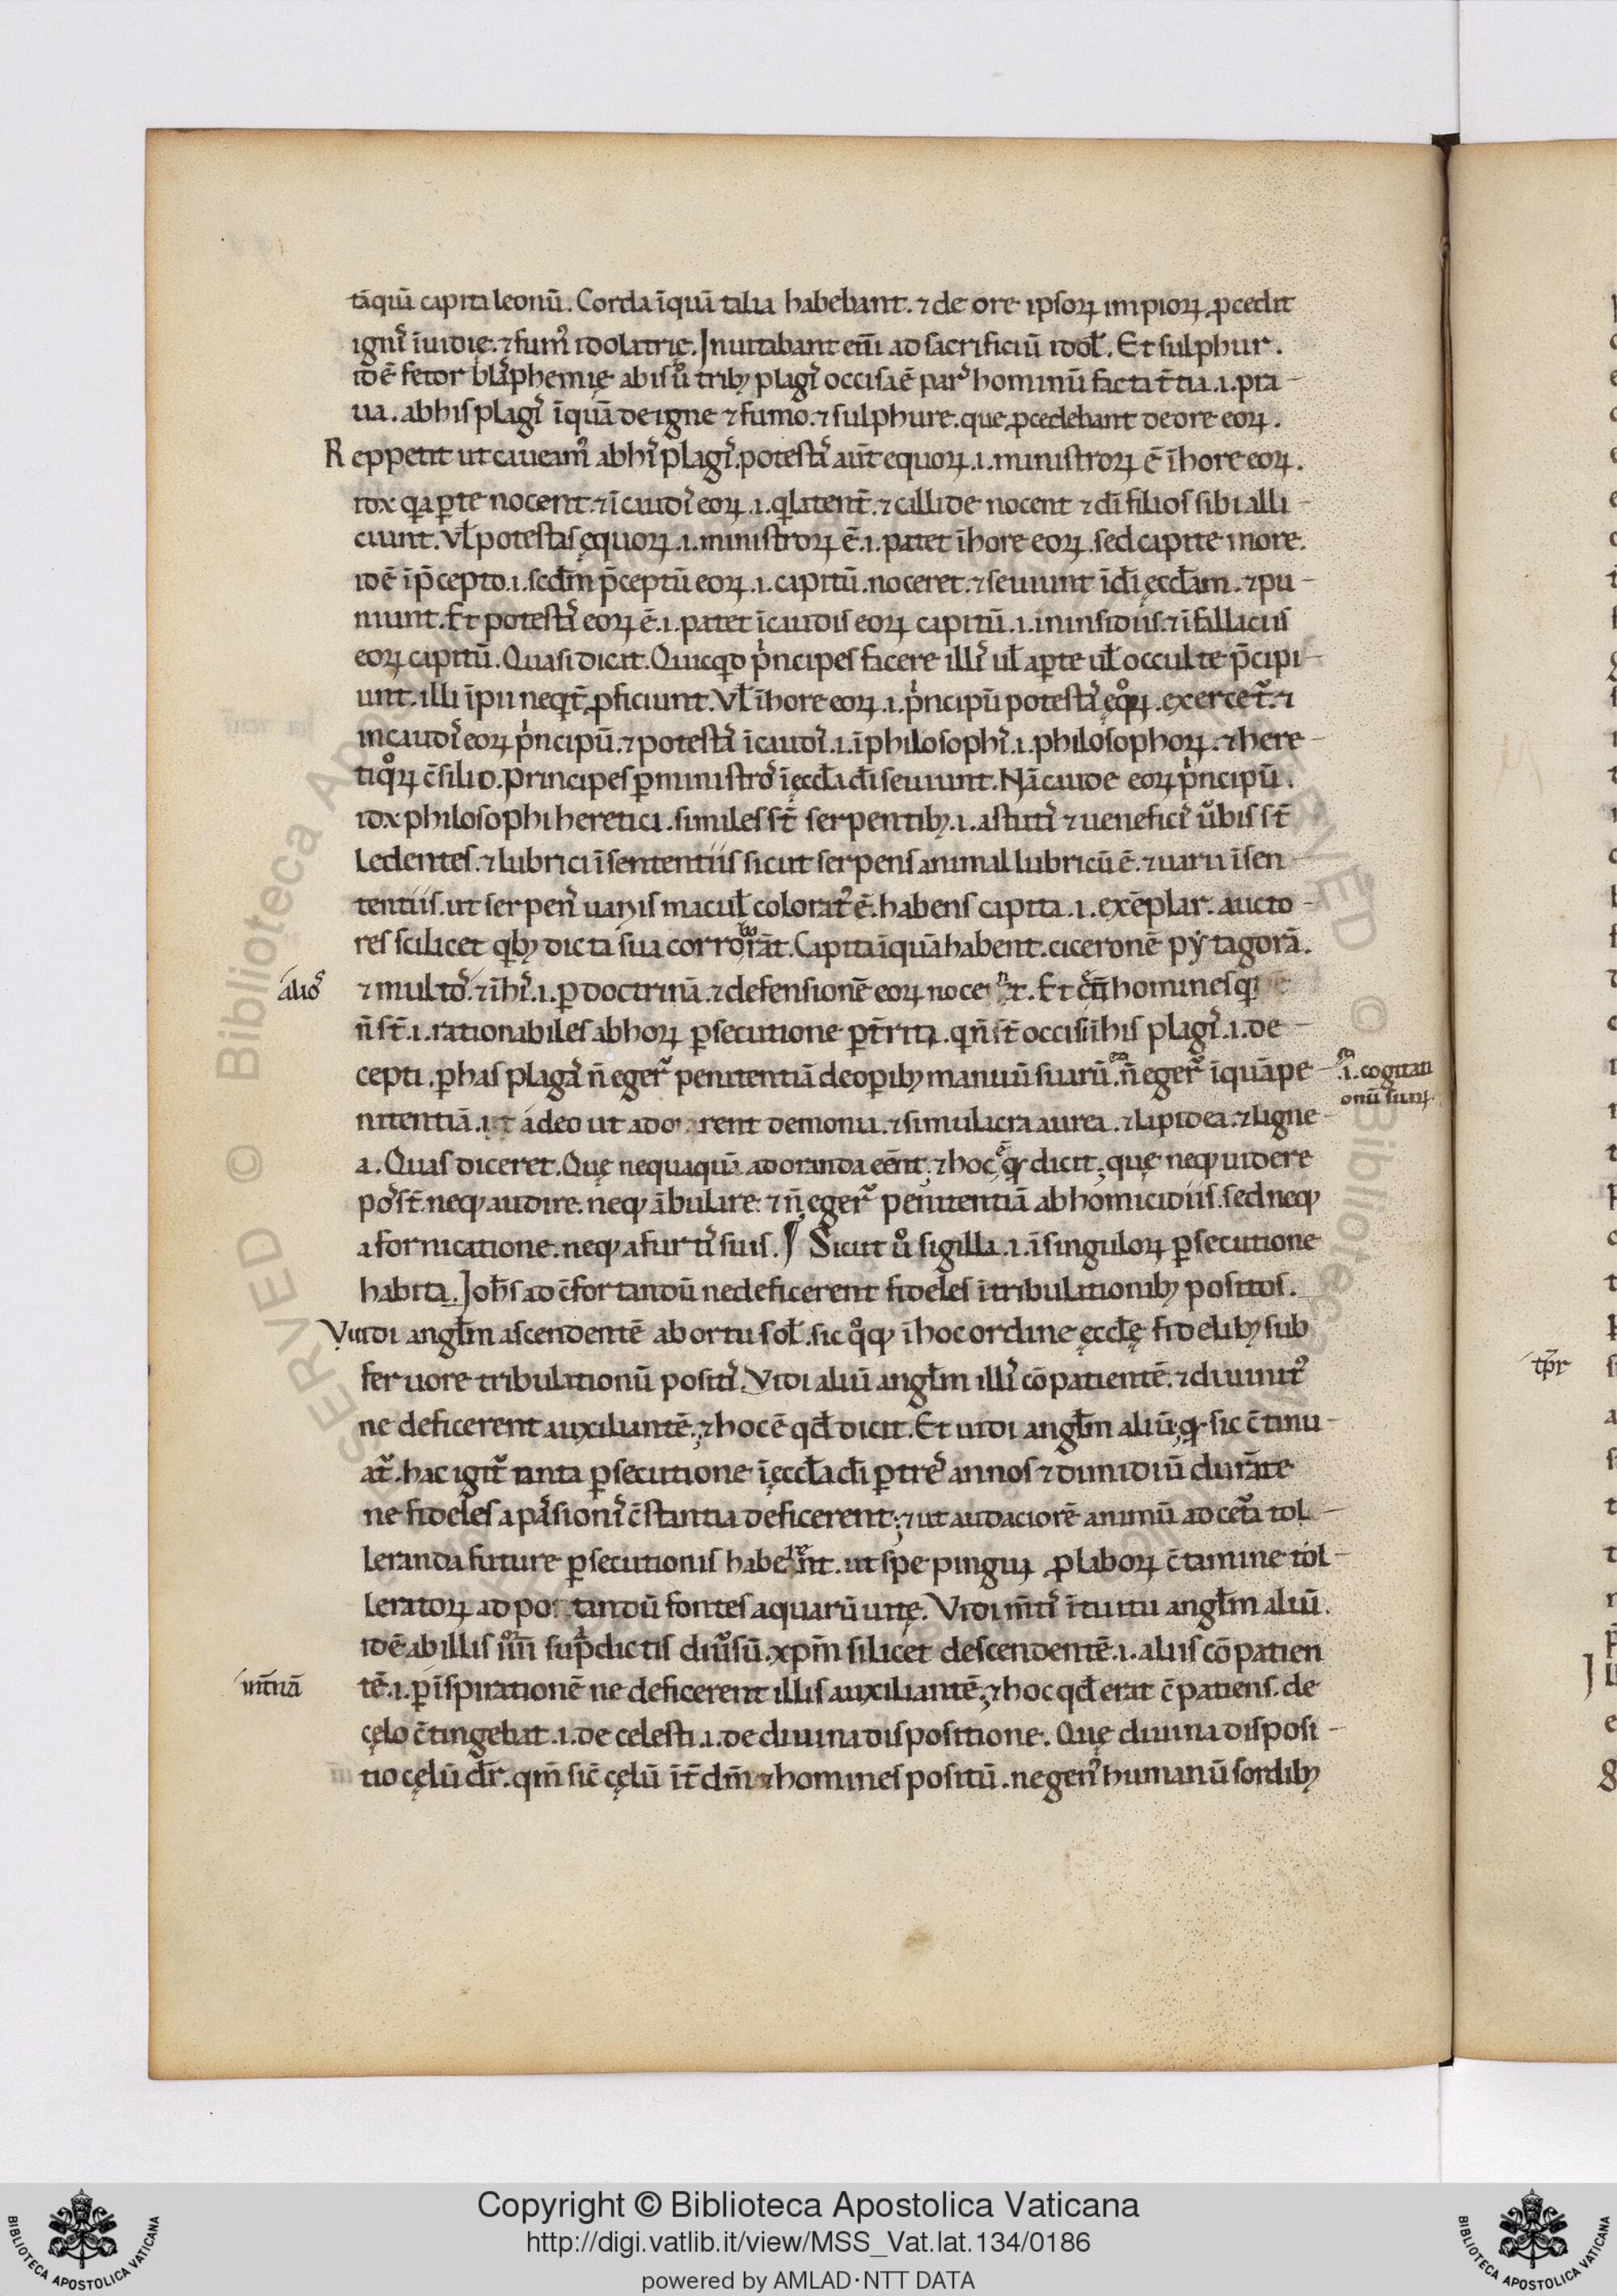 tāquā capita leonū. Corda īquā talia habebant. ⁊ de ore ipsoꝝ impioꝝ ꝓcedit
ignis īuidię. ⁊ fum᷒ idolatrię. Inuitabant enī ad sacrificiū idoł. Et sulphur.
idē fetor blasphemię ab is ů tribꝫ plagis occisa ē pars hominū facta t̄tia .i. pra-
ua. ab his plagis īquā de igne ⁊ fumo. ⁊ sulphure. que ꝓcedebant de ore eoꝝ.
Reppetit ut caueam᷒ ab his plagis. potestas aūt equoꝝ .i. ministroꝝ ē ī hore eoꝝ.
qa aꝑte nocent. ⁊ ī caudis eoꝝ .i. q̄ latent̄. ⁊ callide nocent ⁊ dī filios sibi alli-
ciunt. Vł potestas equoꝝ .i. ministroꝝ ē .i. patet ī hore eoꝝ. sed capite more.
idē ī p̄cepto .i. scđm p̄ceptū eoꝝ .i. capitū. noceret. ⁊ seuiunt ī dī ęccłam. ⁊ pu-
niunt. Et potestas eoꝝ ē .i. patet ī caudis eoꝝ capitū .i. in insidiis. ⁊ ī fallaciis
eoꝝ capitū. Quasi dicit. Quicqd pͥncipes facere illis uł aꝑte uł occulte p̄cipi-
unt. illi īpii neqt̄ ꝓficiunt. Vł ī hore eoꝝ .i. pͥncipū potestas eqͦꝝ. exercet᷑. ⁊
in caudis eoꝝ pͥncipū. ⁊ potestas ī caudis .i. ī philosophis .i. philosophoꝝ. ⁊ here-
tiqͦꝝ c̄silio. principes ꝑ ministros ī ęccła dī seuiunt. Nā caude eoꝝ pͥncipū.
philosophi heretici. similes st̄ serpentibꝫ .i. astutis ⁊ ueneficis ůbis st̄
ledentes. ⁊ lubrici ī sententiis sicut serpens animal lubricū ē. ⁊ uarii ī sen
tentiis. ut serpens uariis macuł colorat᷒ ē. habens capita .i. exēplar. aucto-
res scilicet qͥbꝫ dicta sua corroborāt. Capita īquā habent. ciceronē pytagorā.
alios
⁊ multos. ⁊ ī his .i. ꝑ doctrinā. ⁊ defensionē eoꝝ nocent. Et homines
n̄ st̄ .i. rationabiles ab hoꝝ ꝑsecutione qͥ n̄ st̄ occisi ī his plagis .i. de-
cepti. ꝑ has plagas n̄ eger᷑ penitentiā de oꝑibꝫ manuū suarū. n̄ eger᷑ īquā pe-
.i. cogitati
onū suaꝝ
nitentiā. adeo ut adorarent demonia. ⁊ simulacra aurea. ⁊ lapidea. ⁊ ligne-
a. Quasi diceret. Quę nequaquā adoranda eēnt. ⁊ hoc ē qđ dicit; quę neqꝫ uidere
posst̄. neqꝫ audire. neqꝫ ābulare. ⁊ n̄ eger᷑ penitentiā ab homicidiis. sed neqꝫ
a fornicatione. neqꝫ a furtis suis. ¶ Sicut ů sigilla .i. ī singuloꝝ ꝑsecutione
habita. Joħs ad c̄fortandū ne deficerent fideles ī tribulationibꝫ positos.
Vidi angłm ascendentē ab ortu soł. sic qͦqꝫ ī hoc ordine ęccłę fidelibꝫ sub
feruore tribulationū positis. Vidi aliū angłm illis cōpatientē. ⁊ diuinit᷒
ne deficerent auxiliantē. ⁊ hoc ē qđ dicit. Et uidi angłm aliū; qđ sic c̄tinu-
at᷑. hac igit᷑ tanta ꝑsecutione ī ęccła dī ꝑ tres annos ⁊ dimidiū durāte
ne fideles a passionis c̄stantia deficerent; ⁊ ut audaciorē animū ad cet̄a tol-
leranda future ꝑsecutionis haberent. ut spe pinguī ꝓ laboꝝ c̄tamine tol-
leratoꝝ ad portandū fontes aquarū uitę. Vidi īt̄ uitu angłm aliū.
idē ab illis iiii supᵃdictis diůsū. xp̄m silicet descendentē .i. aliis cōpatien
int̄nā
tē .i. ꝑ īspirationē ne deficerent illis auxiliantē; ⁊ hoc qđ erat c̄patiens. de
cęlo c̄tingebat .i. de celesti .i. de diuina dispositione. Quę diuina disposi-
tio cęlū dr̄. qm̄ sic cęlū īt̄ dm̄ ⁊ homines positū. ne gen᷒ humanū sordibꝫ
tp̄r
Copyright © Biblioteca Apostolica Vaticana
http://digi.vatlib.it/view/MSS_Vat.lat.134/0186
powered by AMLAD·NTT DATA
BIBLIOTECA APOSTOLICA VATICANA
BIBLIOTECA APOSTOLICA VATICANA